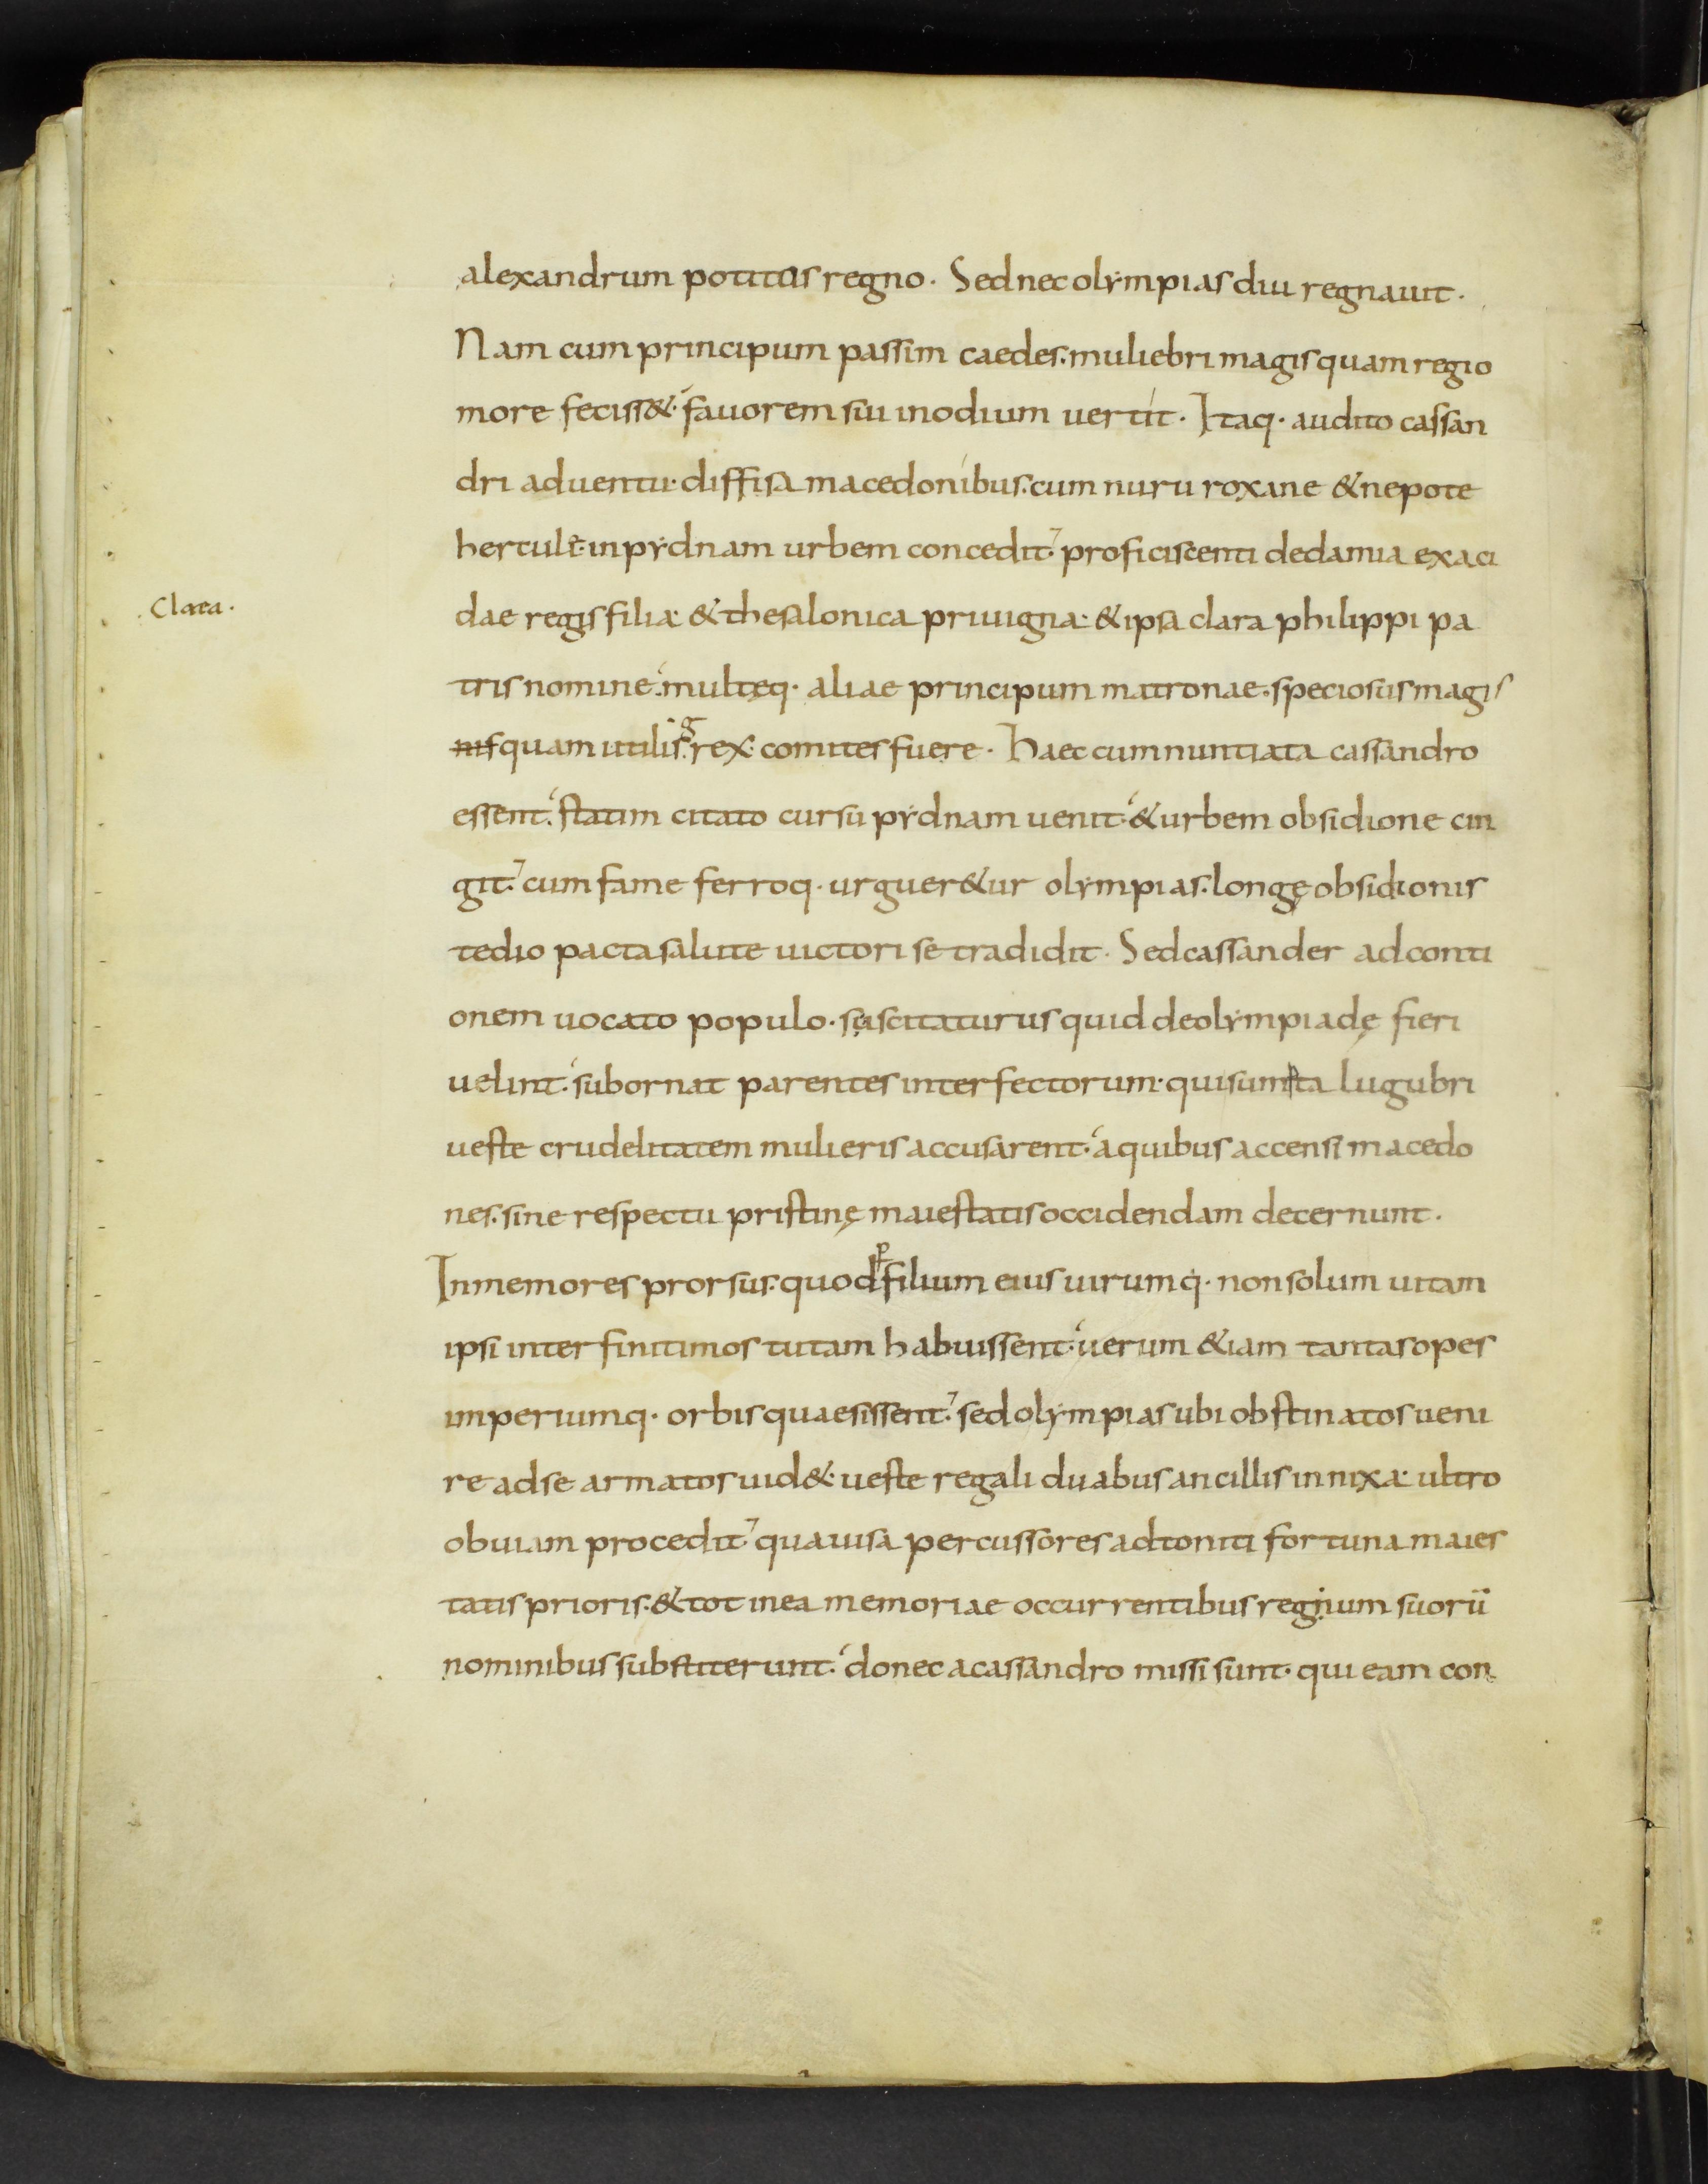 alexandrum potitus regno. Sed nec olẏmpias diu regnauit.
Nam cum principum passim caedes. muliebri magis quam regio
more feciss&. fauorem sui inodium uertit. Itaq. audito cassan
dri aduentu. diffisa macedonibus. cum nuru roxane & nepote
hercule. inpẏdnam urbem concedit. proficiscenti dedamia exaci
Clara.
dae regis filia. & thesalonica priuigna. & ipsa clara philippi pa
tris nomine. multęq. aliae principum matronae. speciosus magis
quam utilis. rex. comites fuere. Haec cum nuntiata cassandro
essent. statim citato cursu pẏdnam uenit. & urbem obsidione cin
git. cum fame ferroq. urguer&ur olẏmpias. longę obsidionis
tedio pacta salute uictori se tradidit. Sed cassander ad conti
onem uocato populo. suscitaturus quid de olẏmpiadę fieri
uelint. subornat parentes interfectorum. qui sumta lugubri
ueste crudelitatem mulieris accusarent. a quibus accensi macedo
nes. sine respectu pristinę maiestatis occidendam decernunt.
Inmemores prorsus. quod p filium eius uirumq. non solum uitam
ipsi inter finitimos tutam habuissent. uerum &iam tantas opes
imperiumq. orbis quaesissent. sed olẏmpias ubi obstinatos ueni
re ad se armatos uid&. ueste regali duabus ancillis innixa. ultro
obuiam procedit. qua uisa percussores adtoniti fortuna maies
tatis prioris. & tot in ea memoriae occurrentibus regnum suorū
nominibus substiterunt. donec a cassandro missi sunt. qui eam con